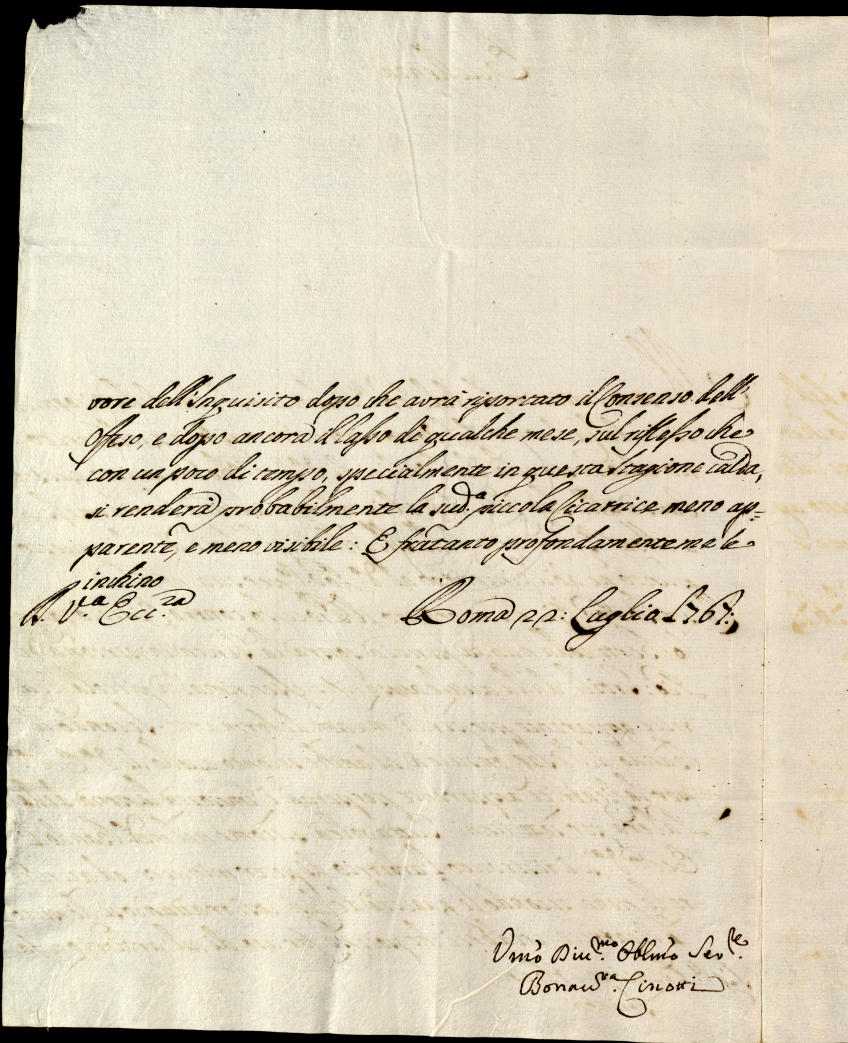 vore dell'Inquisito dopo che avrà riportato il Consenso dell'
Offeso, e dopo ancora il lasso di qualche mese, sul riflesso che
con un poco di tempo, specialmente in questa Stagione calda,
si renderà probabilmente la sud.ª piccola Cicatrice meno ap=
parente, e meno visibile: E frattanto profondamente me le
inchino
V.ª Ecc.za
Roma 22: Luglio 1767:
Umo Div.mo Oblmo Ser.re
Bonav.ra Cinotti